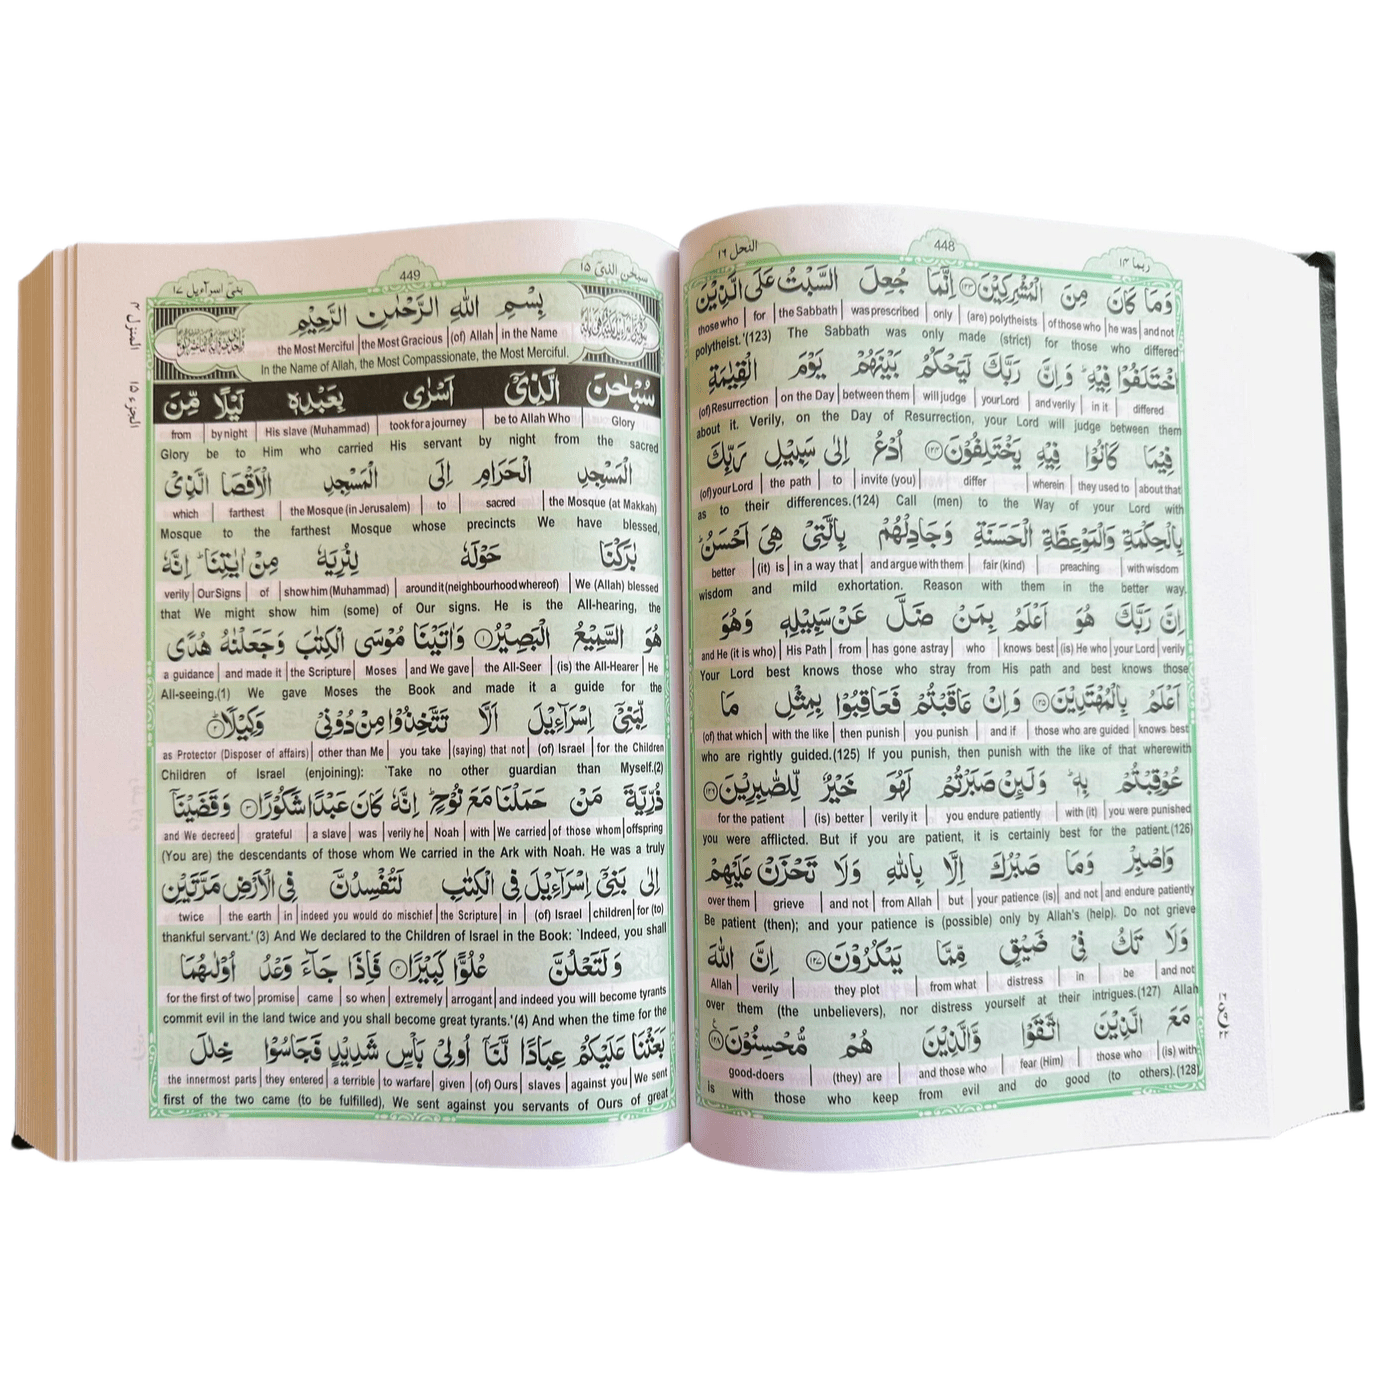 النحل ١٦
448
ربما ١٤
وَمَا كَانَ مِنَ الْمُشْرِكِيْنَ ۝١٢٣ اِنَّمَا جُعِلَ السَّبْتُ عَلَى الَّذِيْنَ
those who | for | the Sabbath | was prescribed | only | (are) polytheists | of those who | he was | and not
polytheist.'(123) The Sabbath was only made (strict) for those who differed
اخْتَلَفُوْا فِيْهِ ۚ وَاِنَّ رَبَّكَ لَيَحْكُمُ بَيْنَهُمْ يَوْمَ الْقِيٰمَةِ
(of) Resurrection | on the Day | between them | will judge | your Lord | and verily | in it | differed
about it. Verily, on the Day of Resurrection, your Lord will judge between them
فِيْمَا كَانُوْا فِيْهِ يَخْتَلِفُوْنَ ۝١٢٤ اُدْعُ اِلٰى سَبِيْلِ رَبِّكَ
(of) your Lord | the path | to | invite (you) | differ | wherein | they used to | about that
as to their differences.(124) Call (men) to the Way of your Lord with
بِالْحِكْمَةِ وَالْمَوْعِظَةِ الْحَسَنَةِ وَجَادِلْهُمْ بِالَّتِيْ هِيَ اَحْسَنُ ؕ
better | (it) is | in a way that | and argue with them | fair (kind) | preaching | with wisdom
wisdom and mild exhortation. Reason with them in the better way.
اِنَّ رَبَّكَ هُوَ اَعْلَمُ بِمَنْ ضَلَّ عَنْ سَبِيْلِهٖ وَهُوَ
and He (it is who) | His Path | from | has gone astray | who | knows best | (is) He who | your Lord | verily
Your Lord best knows those who stray from His path and best knows those
اَعْلَمُ بِالْمُهْتَدِيْنَ ۝١٢٥ وَاِنْ عَاقَبْتُمْ فَعَاقِبُوْا بِمِثْلِ مَا
(of) that which | with the like | then punish | you punish | and if | those who are guided | knows best
who are rightly guided.(125) If you punish, then punish with the like of that wherewith
عُوْقِبْتُمْ بِهٖ ؕ وَلَىِٕنْ صَبَرْتُمْ لَهُوَ خَيْرٌ لِّلصّٰبِرِيْنَ ۝١٢٦
for the patient | (is) better | verily it | you endure patiently | with (it) | you were punished
you were afflicted. But if you are patient, it is certainly best for the patient.(126)
وَاصْبِرْ وَمَا صَبْرُكَ اِلَّا بِاللّٰهِ وَلَا تَحْزَنْ عَلَيْهِمْ
over them | grieve | and not | from Allah | but | your patience (is) | and not | and endure patiently
Be patient (then); and your patience is (possible) only by Allah's (help). Do not grieve
وَلَا تَكُ فِيْ ضَيْقٍ مِّمَّا يَمْكُرُوْنَ ۝١٢٧ اِنَّ اللّٰهَ
Allah | verily | they plot | from what | distress | in | be | and not
over them (the unbelievers), nor distress yourself at their intrigues.(127) Allah
مَعَ الَّذِيْنَ اتَّقَوْا وَّالَّذِيْنَ هُمْ مُّحْسِنُوْنَ ۝١٢٨
good-doers | (they) are | and those who | fear (Him) | those who | (is) with
is with those who keep from evil and do good (to others).(128)
بنىٓ اسرآءيل ١٧
449
سبحٰن الذىٓ ١٥
المنزل ٤
الجزء ١٥
بِسْمِ اللّٰهِ الرَّحْمٰنِ الرَّحِيْمِ
the Most Merciful | the Most Gracious | (of) Allah | in the Name
In the Name of Allah, the Most Compassionate, the Most Merciful.
سُبْحٰنَ الَّذِيْٓ اَسْرٰى بِعَبْدِهٖ لَيْلًا مِّنَ
from | by night | His slave (Muhammad) | took for a journey | be to Allah Who | Glory
Glory be to Him who carried His servant by night from the sacred
الْمَسْجِدِ الْحَرَامِ اِلَى الْمَسْجِدِ الْاَقْصَا الَّذِيْ
which | farthest | the Mosque (in Jerusalem) | to | sacred | the Mosque (at Makkah)
Mosque to the farthest Mosque whose precincts We have blessed,
بٰرَكْنَا حَوْلَهٗ لِنُرِيَهٗ مِنْ اٰيٰتِنَا ؕ اِنَّهٗ
verily | Our Signs | of | show him (Muhammad) | around it (neighbourhood whereof) | We (Allah) blessed
that We might show him (some) of Our signs. He is the All-hearing, the
هُوَ السَّمِيْعُ الْبَصِيْرُ ۝١ وَاٰتَيْنَا مُوْسَى الْكِتٰبَ وَجَعَلْنٰهُ هُدًى
a guidance | and made it | the Scripture | Moses | and We gave | the All-Seer | (is) the All-Hearer | He
All-seeing.(1) We gave Moses the Book and made it a guide for the
لِّبَنِيْٓ اِسْرَآءِيْلَ اَلَّا تَتَّخِذُوْا مِنْ دُوْنِيْ وَكِيْلًا ۝٢
as Protector (Disposer of affairs) | other than Me | you take | (saying) that not | (of) Israel | for the Children
Children of Israel (enjoining): `Take no other guardian than Myself.(2)
ذُرِّيَّةَ مَنْ حَمَلْنَا مَعَ نُوْحٍ ؕ اِنَّهٗ كَانَ عَبْدًا شَكُوْرًا ۝٣ وَقَضَيْنَآ
and We decreed | grateful | a slave | was | verily he | Noah | with | We carried | of those whom | offspring
(You are) the descendants of those whom We carried in the Ark with Noah. He was a truly
اِلٰى بَنِيْٓ اِسْرَآءِيْلَ فِي الْكِتٰبِ لَتُفْسِدُنَّ فِي الْاَرْضِ مَرَّتَيْنِ
twice | the earth | in | indeed you would do mischief | the Scripture | in | (of) Israel | children | for (to)
thankful servant.'(3) And We declared to the Children of Israel in the Book: `Indeed, you shall
وَلَتَعْلُنَّ عُلُوًّا كَبِيْرًا ۝٤ فَاِذَا جَآءَ وَعْدُ اُوْلٰىهُمَا
for the first of two | promise | came | so when | extremely | arrogant | and indeed you will become tyrants
commit evil in the land twice and you shall become great tyrants.'(4) And when the time for the
بَعَثْنَا عَلَيْكُمْ عِبَادًا لَّنَآ اُولِيْ بَاْسٍ شَدِيْدٍ فَجَاسُوْا خِلٰلَ
the innermost parts | they entered | a terrible | to warfare | given | (of) Ours | slaves | against you | We sent
first of the two came (to be fulfilled), We sent against you servants of Ours of great